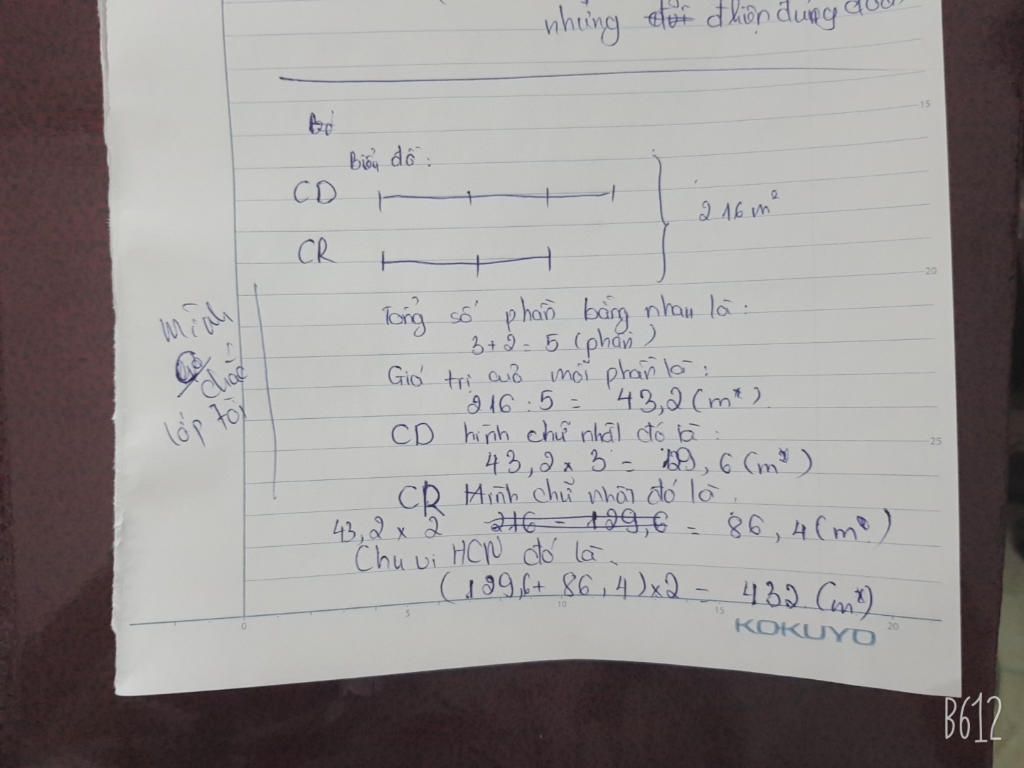 những đhiện dụng
15
Biểu đồ:
CD
216 m²
CR
20
Tổng số phần bằng nhau là:
3+2=5 (phần)
Giá trị của mỗi phần là:
216:5= 43,2(m²)
CD hình chữ nhật đó là:
25
43,2 x 3 = 129,6(m²)
CR Hình chữ nhật đó là.
43,2 x 2 216 - 129,6 = 86,4(m²)
Chu vi HCN đó là.
(129,6+ 86,4)x2 = 432 (m²)
0 5 10 15 20
KOKUYO
mình
chắc
lớp tôi
B612